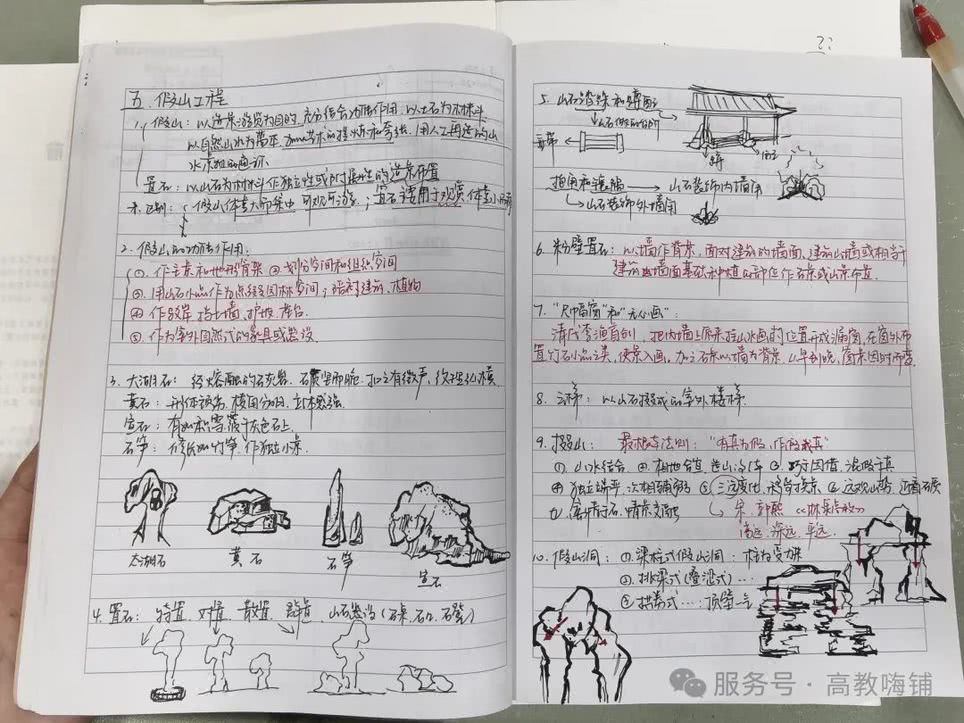 五、假山工程
1. 假山：以造景游览为目的，充分结合功能作用，以土石为材料
以自然山水为蓝本，加以艺术的提炼和夸张，用人工再造的山
水景观的通称
置石：以山石为材料作独立性或附属性的造景布置
区别：假山体大而集中 可观可游；置石适用于观赏 体量小而
2. 假山的功能作用：
① 作主景和地形骨架 ② 划分空间和组织空间
③ 用山石小品作为点缀园林空间；陪衬建筑、植物
④ 作驳岸、挡土墙、护坡、花台
⑤ 作为室外自然式的家具或器设
3. 太湖石：经熔融的石灰岩，石质坚而脆，扣之有微声，纹理纵横
黄石：形体顽夯，棱角分明，立体感强
宣石：有如积雪落于灰色石上
石笋：修长如竹笋，作独立小景
太湖石 黄石 石笋 宣石
4. 置石：特置、对置、散置、群置、山石器设（石桌、石凳）
5. 山石
云梯
抱角和镶隅 → 山石装饰内墙角
山石装饰外墙角
6. 粉壁置石：以墙作背景，面对建筑的墙面、建筑山墙或相当于
建筑墙面基础种植的部位作石景或山景布置
7. "尺幅窗"和"无心画"：
清代李渔首创，把内墙上原来挂山水画的位置开成漏窗，在窗外布
置竹石小品之类，使景入画，
8. 云梯：以山石掇成的室外楼梯
9. 掇山：最根本法则："有真为假，作假成真"
① 山水结合 ② 相地合宜，造山 ③ 巧于因借，混假于真
④ 独立端严，次相辅弼 ⑤ 三远变化，移步换景 ⑥ 远观山势，近看石质
⑦ 寓情于石，情景交融
宋 郭熙《林泉高致》
高远、深远、平远
10. 假山洞：① 梁柱式假山洞：柱为受力
② 挑梁式（叠涩式）…
③ 拱券式…
??
服务号·高教嗨铺